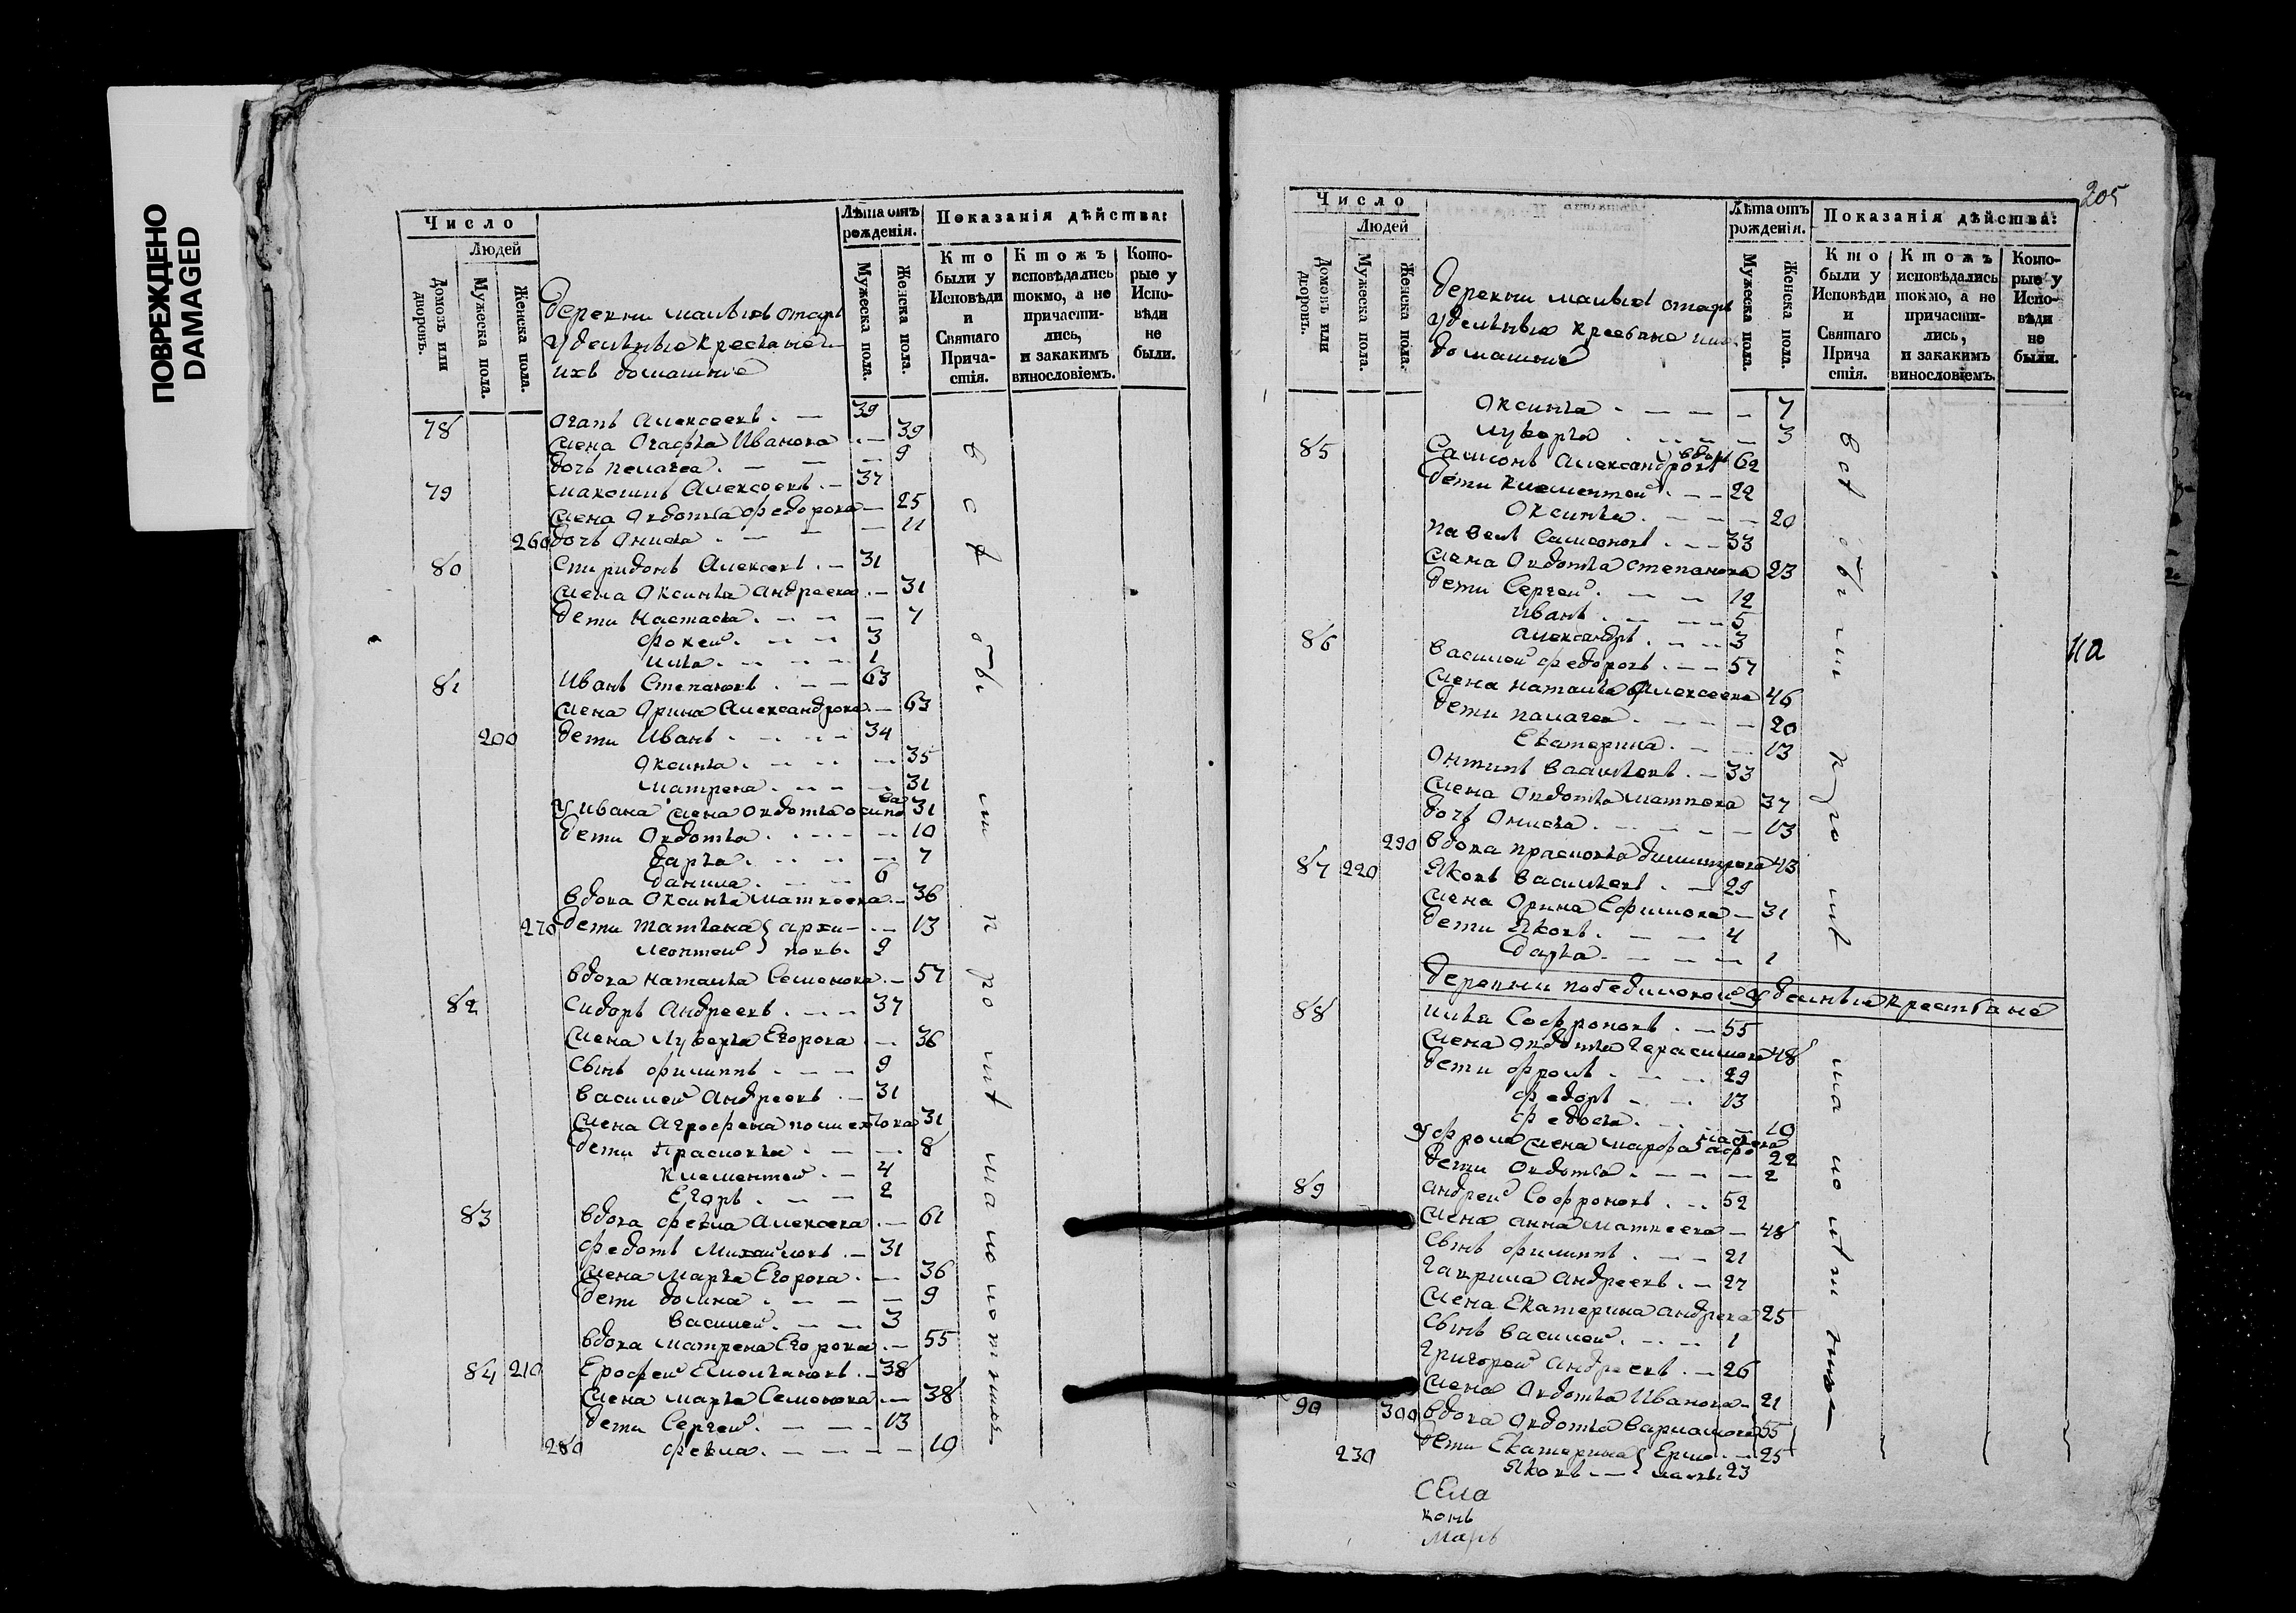 ПОВРЕЖДЕНО
DAMAGED
Число
Людей
Домовъ или дворовъ.
Мужеска пола.
Женска пола.
Лѣта отъ рожденія.
Мужеска пола.
Женска пола.
Показанія дѣйства:
Кто были у Исповѣди и Святаго Прича-стія.
Ктожъ исповѣдались токмо, а не причасти-лись, и закакимъ винословіемъ.
Кото-рые у Испо-вѣди не были.
деревни малыхъ
удельные крестьяне и
ихъ домашние
78 Агапъ Алексеевъ 39
жена Агафья Иванова 39
дочь Пелагея 9
79 Максимъ Алексеевъ 37
жена Овдотья Федорова 25
260 дочь Онисья 11
80 Спиридонъ Алексеевъ 31
жена Оксинья Андреева 31
дети Настасья 7
Фокей 3
Илья 1
81 Иванъ Степановъ 63
жена Орина Александрова 63
200 дети Иванъ 34
Оксинья 35
Матрена 31
у Ивана жена Овдотья Осипова 31
дети Овдотья 10
Дарья 7
Данила 6
вдова Оксинья Матвеева 36
270 дети Татьяна архи- 13
Леонтей повы 9
вдова Наталья Семенова 57
82 Сидоръ Андреевъ 37
жена Лукерья Егорова 36
сынъ Филиппъ 9
Василей Андреевъ 31
жена Аграфена 31
дети Прасковья 8
Клементей 4
Егоръ 2
83 вдова Фекла Алексеева 61
Федотъ Михайловъ 31
жена Марья Егорова 36
дети Домна 9
Василей 3
вдова Матрена Егорова 55
84 210 Ерофей Емельяновъ 38
жена Марья Семенова 38
дети Сергей 13
280 Фекла 10
все
205
Число
Людей
Домовъ или дворовъ.
Мужеска пола.
Женска пола.
Лѣта отъ рожденія.
Мужеска пола.
Женска пола.
Показанія дѣйства:
Кто были у Исповѣди и Святаго Прича стія.
Ктожъ исповѣдались токмо, а не причасти-лись, и закакимъ винословіемъ.
Кото-рые у Испо-вѣди не были.
деревни малыхъ
удельные кресьяне ихъ
домашние
Оксинья 7
Лукерья 3
85 Самсонъ Александровъ вдовъ 62
дети Клементей 22
Оксинья 20
Павелъ Самсоновъ 33
жена Овдотья Степанова 23
дети Сергей 12
Иванъ 5
Александръ 3
86 Василей Федоровъ 57
жена Наталья Алексеева 46
дети Палагея 20
Екатерина 13
Онтипъ Васильевъ 33
жена Овдотья Матвева 37
дочь Онисья 13
290 вдова Прасковья Димитрева 43
87 220 Яковъ Васильевъ 29
жена Орина Ефимова 31
дети Яковъ 4
Дарья 1
удельныя крестьяне
88 Илья Софроновъ 55
жена Овдотья Герасимова 48
дети Фролъ 29
Федоръ 13
Федосья 10
у Фрола жена Марфа 22
дети Овдотья 2
89 Андрей Софроновъ 52
жена Анна Матвеева 48
сынъ Филиппъ 21
Гаврила Андреевъ 27
жена Екатерина Андрева 25
сынъ Василей 1
Григорей Андреевъ 26
жена Овдотья Иванова 21
90 300 вдова Овдотья Варламова 55
230 дети Екатерина Ермо 25
Яковъ лаевы 23
села
конь